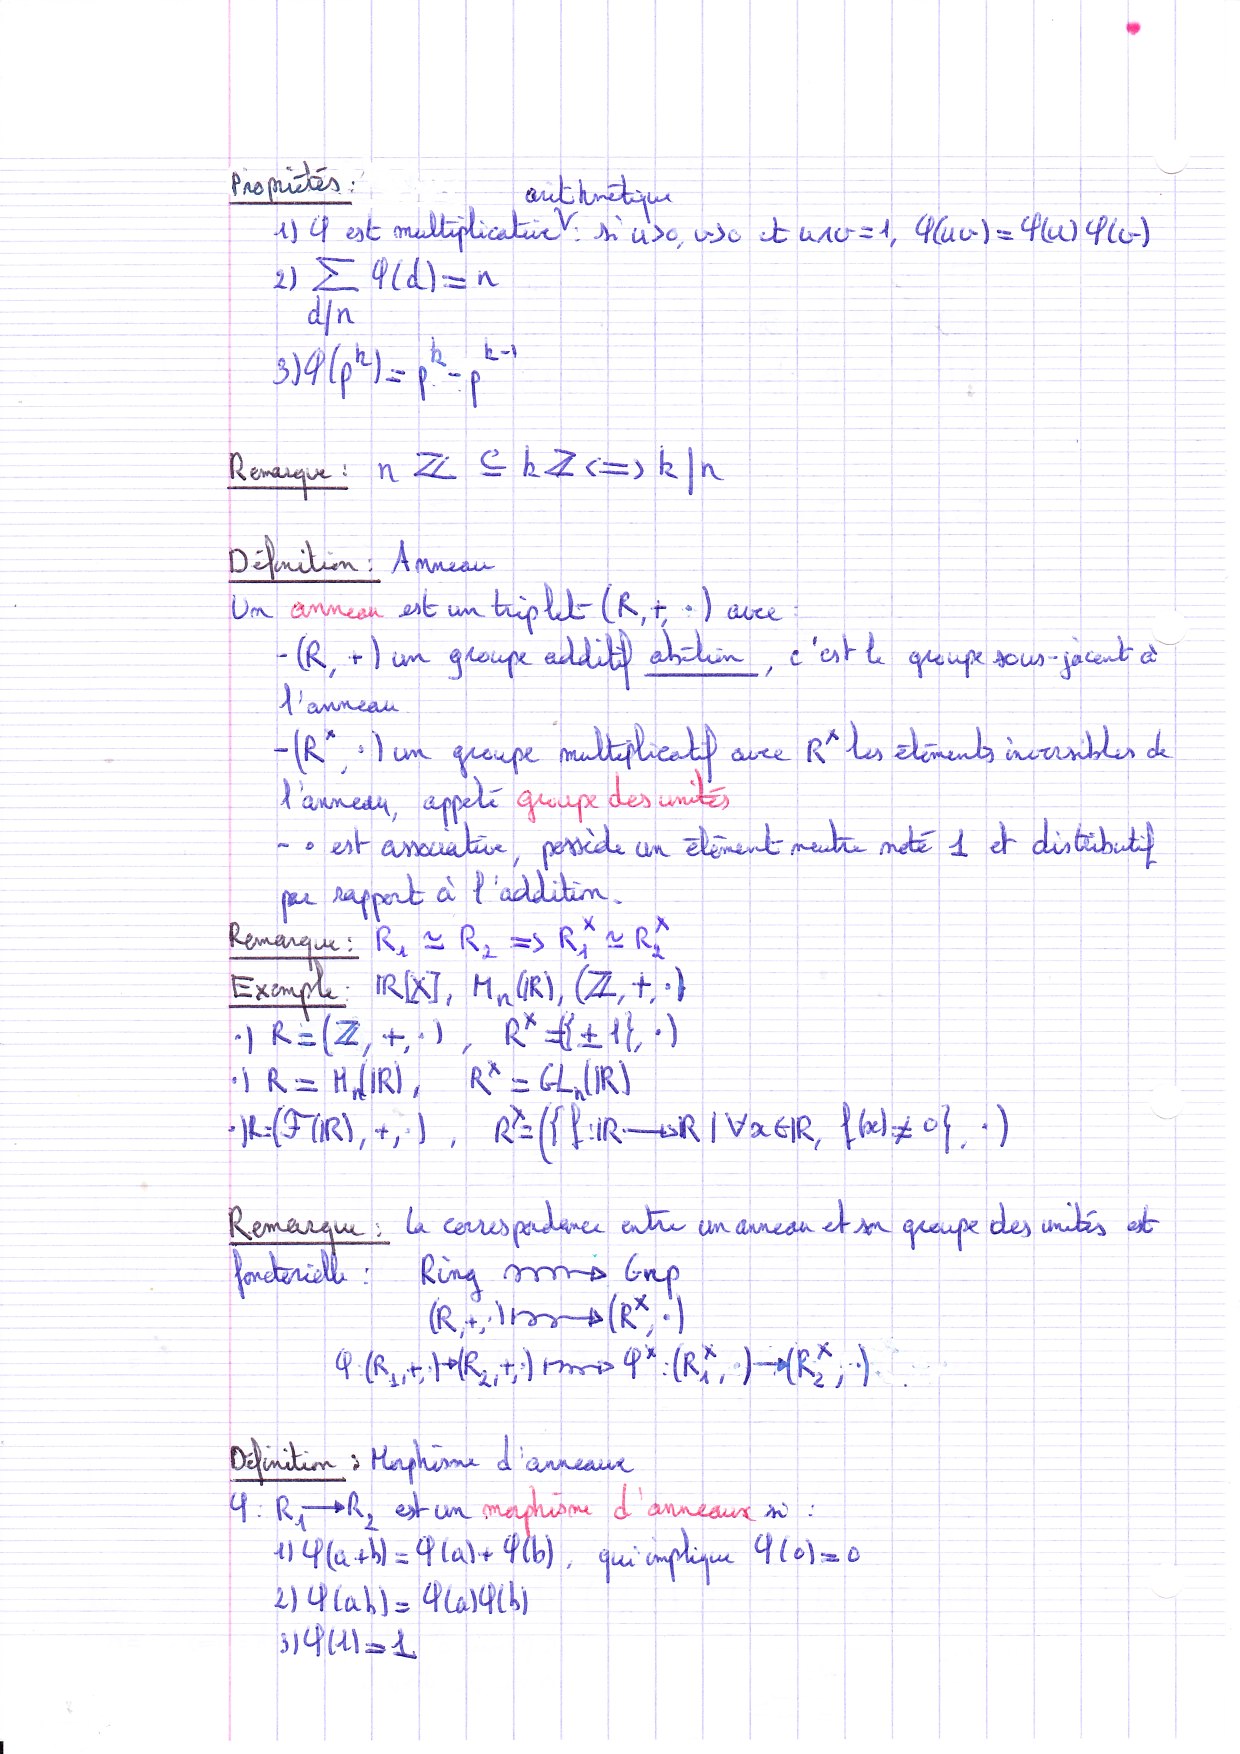 Propriétés :
arithmétique
1) φ est multiplicative V : si u>0, v>0 et u∧v=1, φ(uv)=φ(u)φ(v)
2) ∑ φ(d) = n
d/n
3) φ(p^k) = p^k - p^{k-1}
Remarque : n ℤ ⊆ k ℤ <=> k | n
Définition : Anneau
Un anneau est un triplet (R, +, ·) avec :
- (R, +) un groupe additif abélien, c'est le groupe sous-jacent à
l'anneau
- (R^x, ·) un groupe multiplicatif avec R^x les éléments inversibles de
l'anneau, appelé groupe des unités
- · est associative, possède un élément neutre noté 1 et distributif
par rapport à l'addition.
Remarque : R_1 ≃ R_2 => R_1^x ≃ R_2^x
Exemple : ℝ[X], M_n(ℝ), (ℤ, +, ·)
·) R = (ℤ, +, ·) , R^x = ({±1}, ·)
·) R = M_n(ℝ), R^x = GL_n(ℝ)
·) R = (ℱ(ℝ), +, ·) , R^x = ({f : ℝ → ℝ | ∀x∈ℝ, f(x) ≠ 0}, ·)
Remarque : la correspondance entre un anneau et son groupe des unités est
fonctorielle : Ring ⇝ Grp
(R, +, ·) ⟼ (R^x, ·)
φ : (R_1, +, ·) → (R_2, +, ·) ⟼ φ^x : (R_1^x, ·) → (R_2^x, ·)
Définition : Morphisme d'anneaux
φ : R_1 → R_2 est un morphisme d'anneaux si :
1) φ(a+b) = φ(a) + φ(b), qui implique φ(0) = 0
2) φ(ab) = φ(a)φ(b)
3) φ(1) = 1